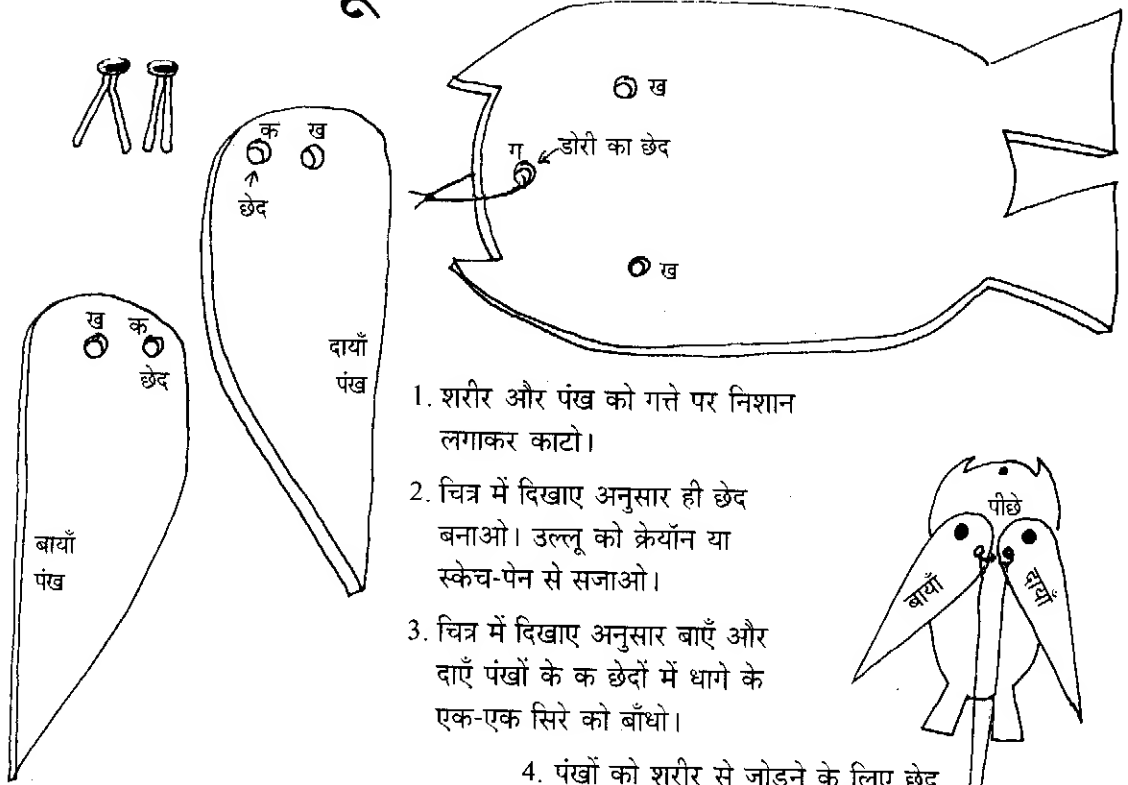 ख
क ख
ग
डोरी का छेद
छेद
ख
ख क
छेद
दायाँ
पंख
बायाँ
पंख
1. शरीर और पंख को गत्ते पर निशान
लगाकर काटो।
2. चित्र में दिखाए अनुसार ही छेद
बनाओ। उल्लू को क्रेयॉन या
स्केच-पेन से सजाओ।
3. चित्र में दिखाए अनुसार बाएँ और
दाएँ पंखों के क छेदों में धागे के
एक-एक सिरे को बाँधो।
पीछे
बायाँ
दायाँ
4. पंखों को शरीर से जोड़ने के लिए छेद